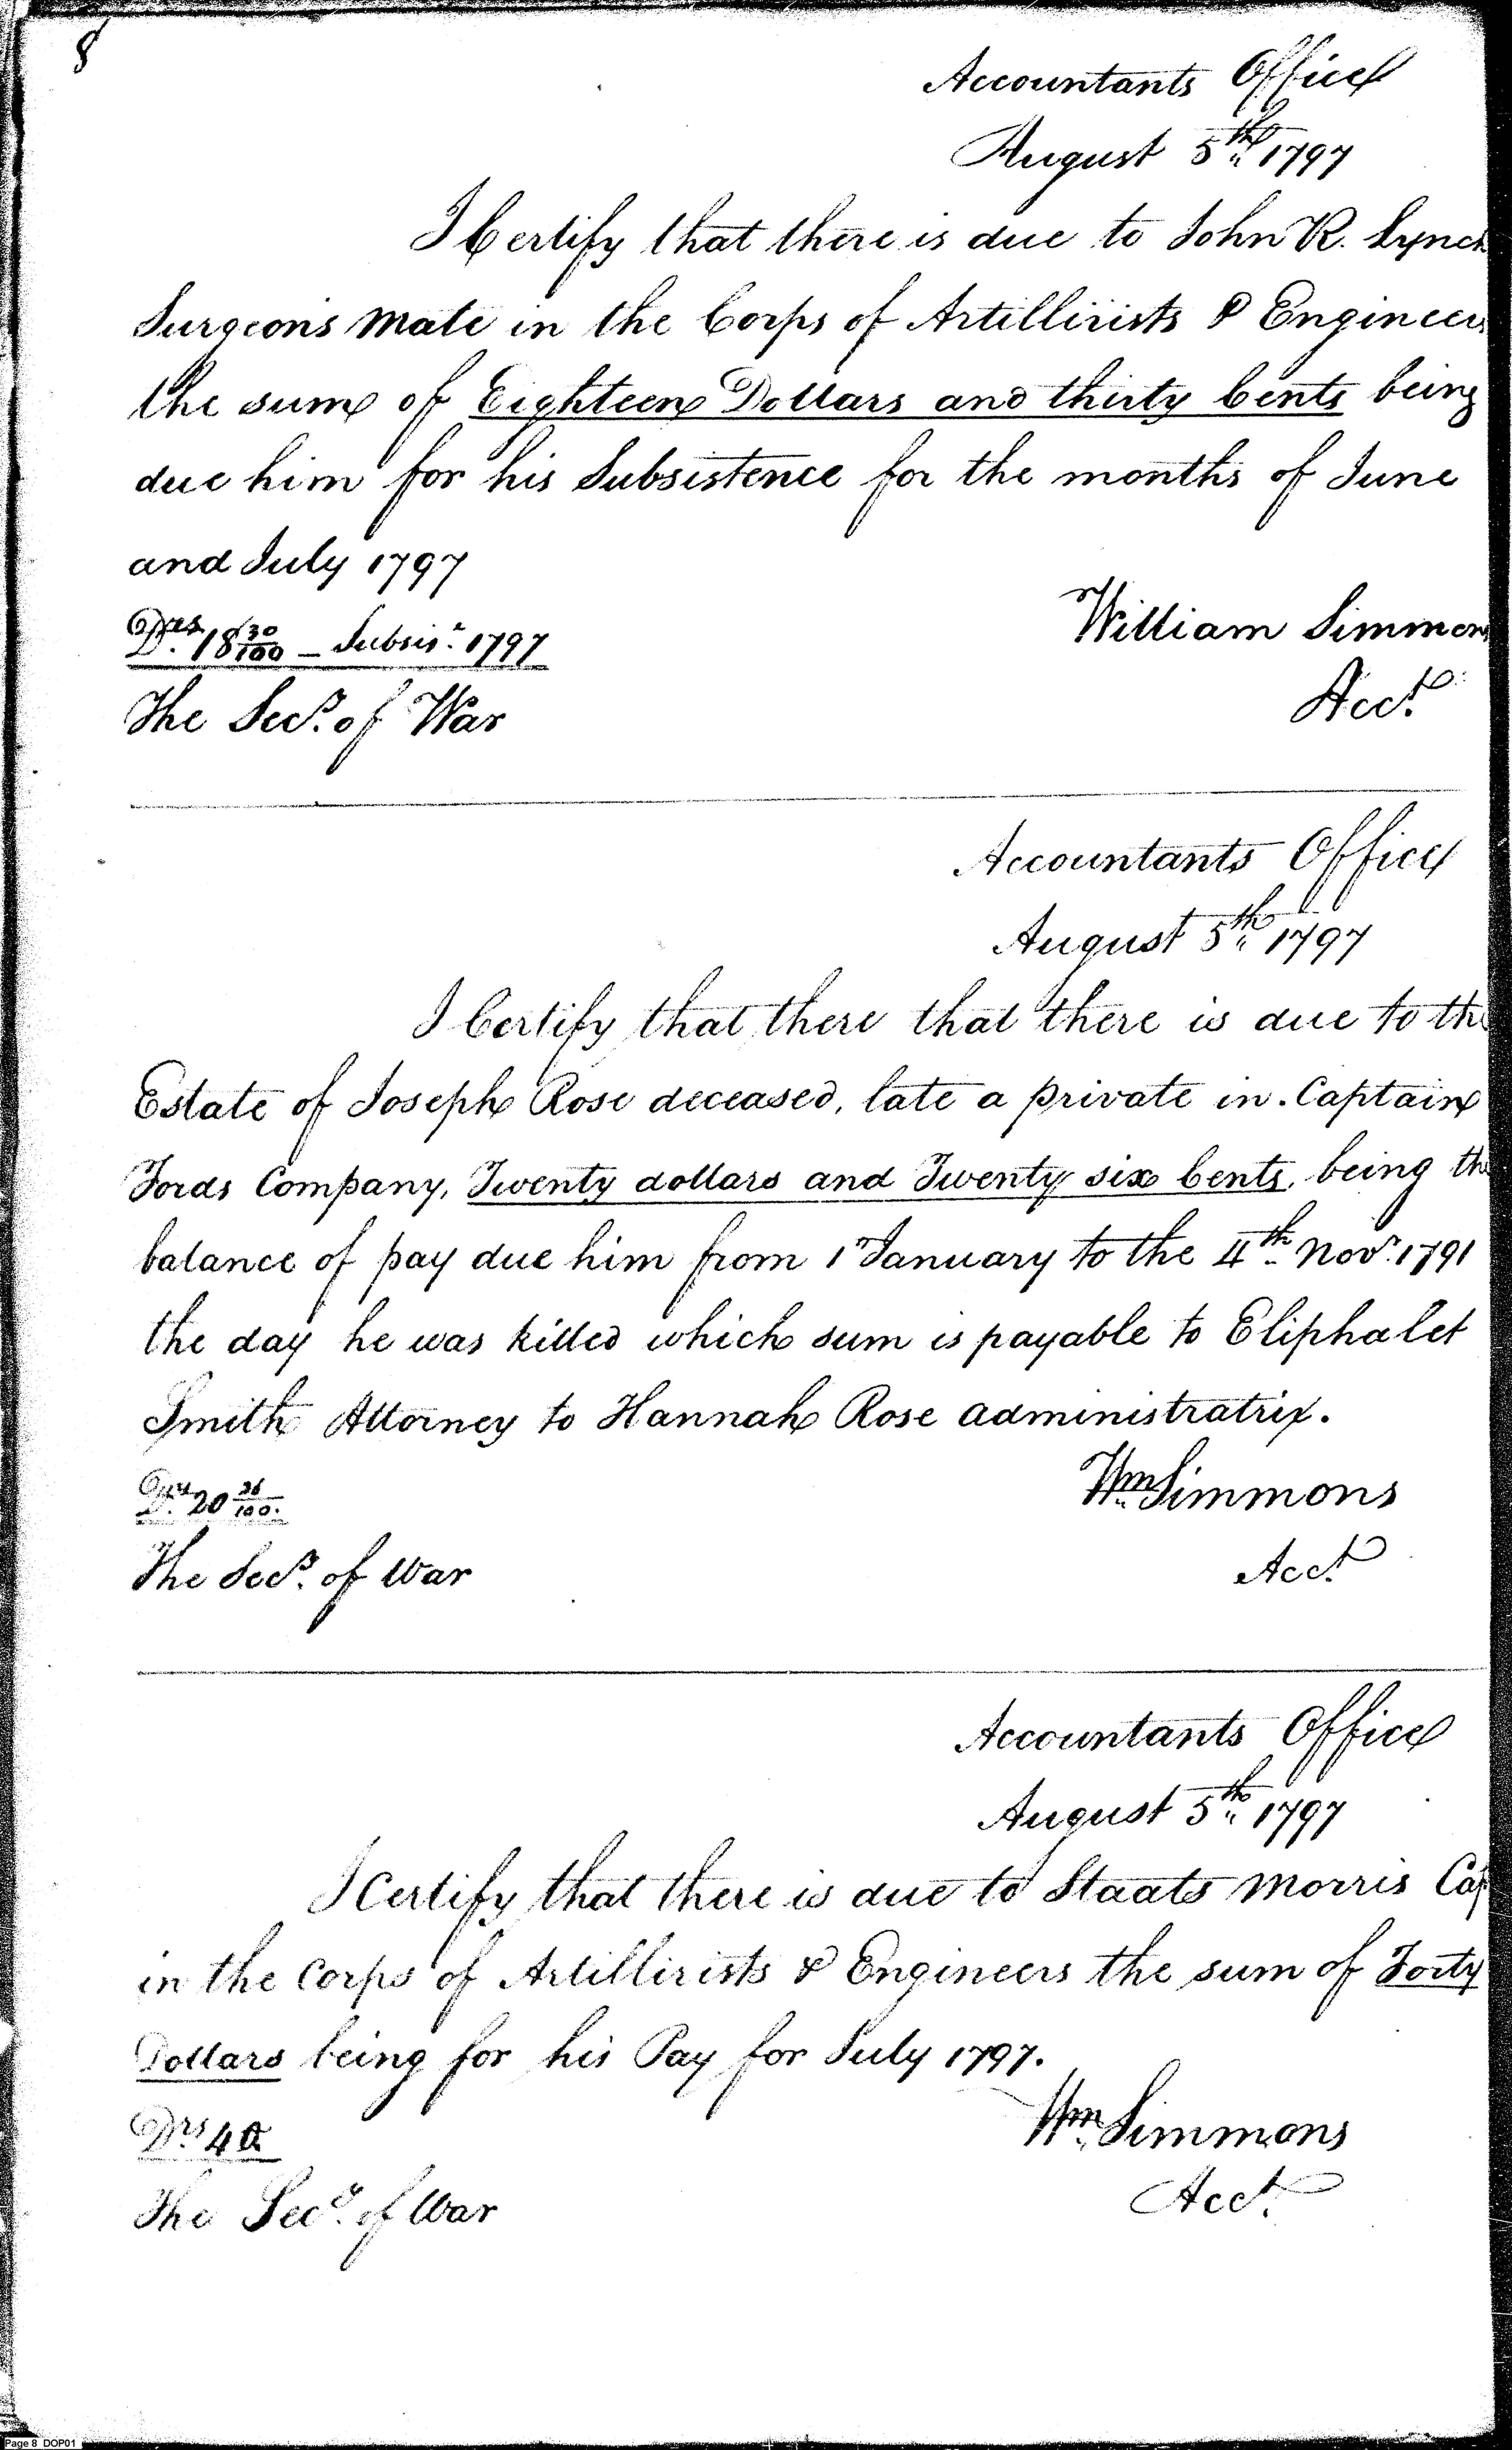 8
Accountants Office
August 5th 1797
I Certify that there is due to John R. Lynch
Surgeons Mate in the Corps of Artillirists & Engineers
the sum of Eighteen Dollars and thirty Cents being
due him for his Subsistence for the months of June
and July 1797
Drs. 18 30/100 — Subsis. 1797
William Simmons
The Secy. of War
Acct.
Accountants Office
August 5th 1797
I Certify that there that there is due to the
Estate of Joseph Rose deceased, late a private in Captain
Fords Company, Twenty dollars and Twenty six Cents, being the
balance of pay due him from 1 January to the 4th Novr. 1791
the day he was killed which sum is payable to Eliphalet
Smith Attorney to Hannah Rose administratrix.
Drs. 20 26/100.
Wm. Simmons
The Secy. of War
Acct.
Accountants Office
August 5th 1797
I Certify that there is due to Staats Morris Cap
in the Corps of Artillirists & Engineers the sum of Forty
Dollars being for his Pay for July 1797.
Drs. 40
Wm. Simmons
The Secy. of War
Acct.
Page 8 DOP01